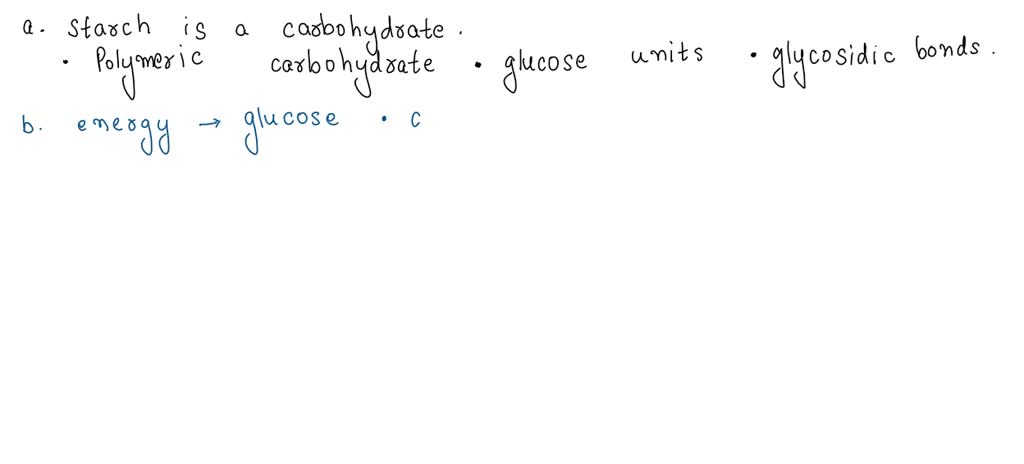 a. Starch is a carbohydrate.
• Polymeric carbohydrate • glucose units • glycosidic bonds.
b. energy → glucose • c